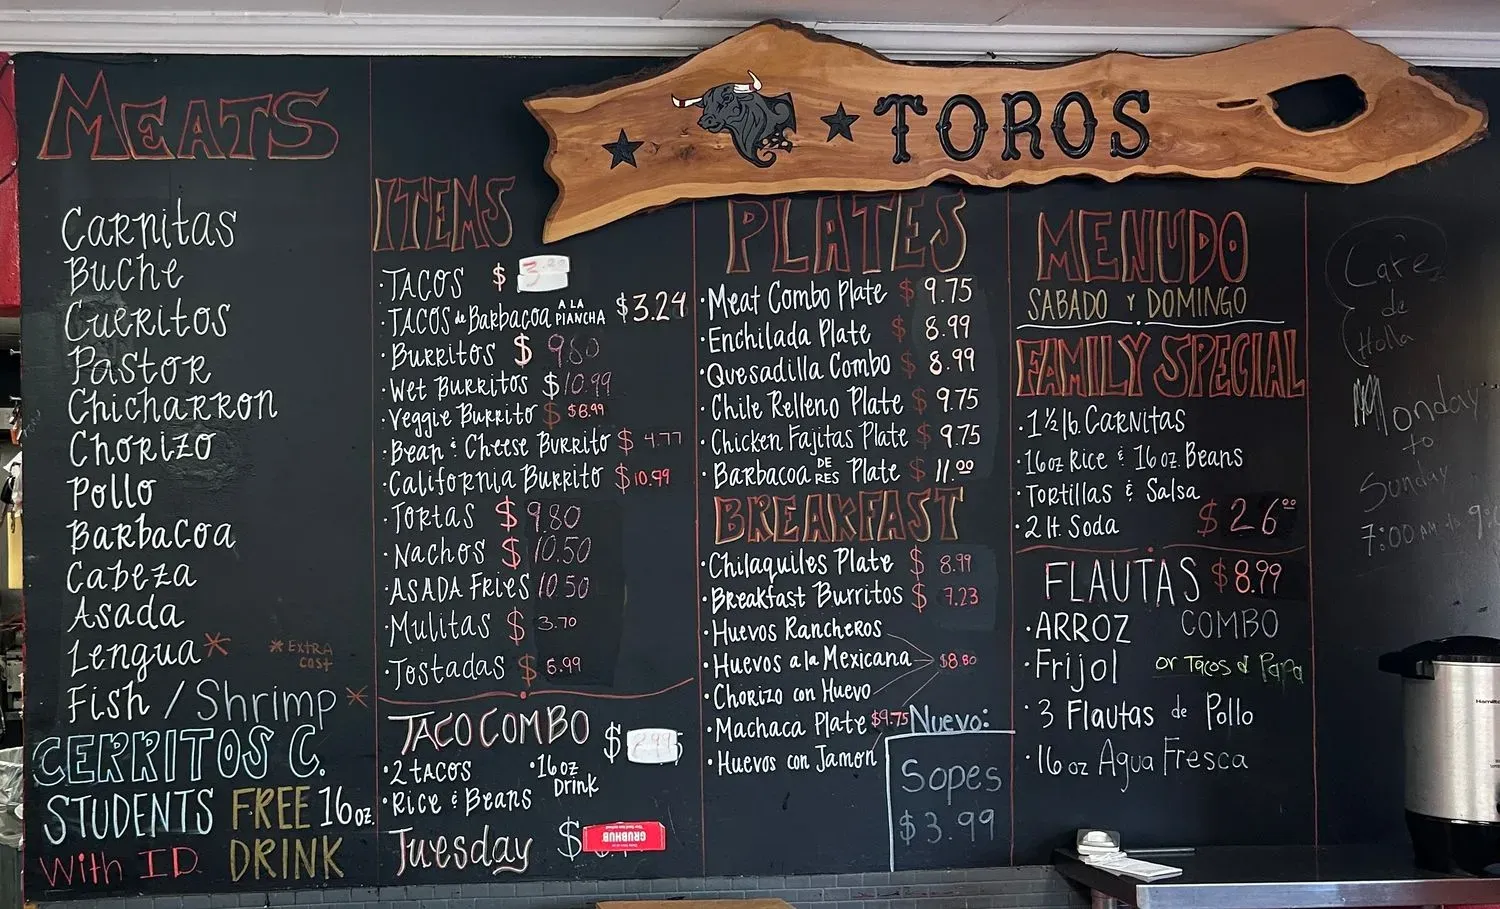 TOROS
MEATS
Carnitas
Buche
Cueritos
Pastor
Chicharron
Chorizo
Pollo
Barbacoa
Cabeza
Asada
Lengua* *Extra cost
Fish / Shrimp *
CERRITOS C.
STUDENTS FREE 16 oz.
With I.D. DRINK
ITEMS
·TACOS $
·TACOS de Barbacoa A LA PLANCHA $3.24
·Burritos $ 9.80
·Wet Burritos $10.99
·Veggie Burrito $ $8.99
·Bean & Cheese Burrito $ 4.77
·California Burrito $10.99
·Tortas $ 9.80
·Nachos $ 10.50
·ASADA Fries 10.50
·Mulitas $ 3.70
·Tostadas $ 5.99
TACO COMBO $
·2 tacos ·16 oz Drink
·Rice & Beans
Tuesday $
GRUBHUB
PLATES
·Meat Combo Plate $ 9.75
·Enchilada Plate $ 8.99
·Quesadilla Combo $ 8.99
·Chile Relleno Plate $ 9.75
·Chicken Fajitas Plate $ 9.75
·Barbacoa DE RES Plate $ 11.00
BREAKFAST
·Chilaquiles Plate $ 8.99
·Breakfast Burritos $ 7.23
·Huevos Rancheros
·Huevos a la Mexicana $8.80
·Chorizo con Huevo
·Machaca Plate $9.75
·Huevos con Jamon
Nuevo:
Sopes
$3.99
MENUDO
SABADO Y DOMINGO
FAMILY SPECIAL
·1 ½ lb. Carnitas
·16oz Rice & 16 oz. Beans
·Tortillas & Salsa
·2 lt. Soda $26.00
FLAUTAS $8.99
·ARROZ COMBO
·Frijol or Tacos d Papa
·3 Flautas de Pollo
·16 oz Agua Fresca
Cafe
de
Holla
Monday
to
Sunday
7:00 AM